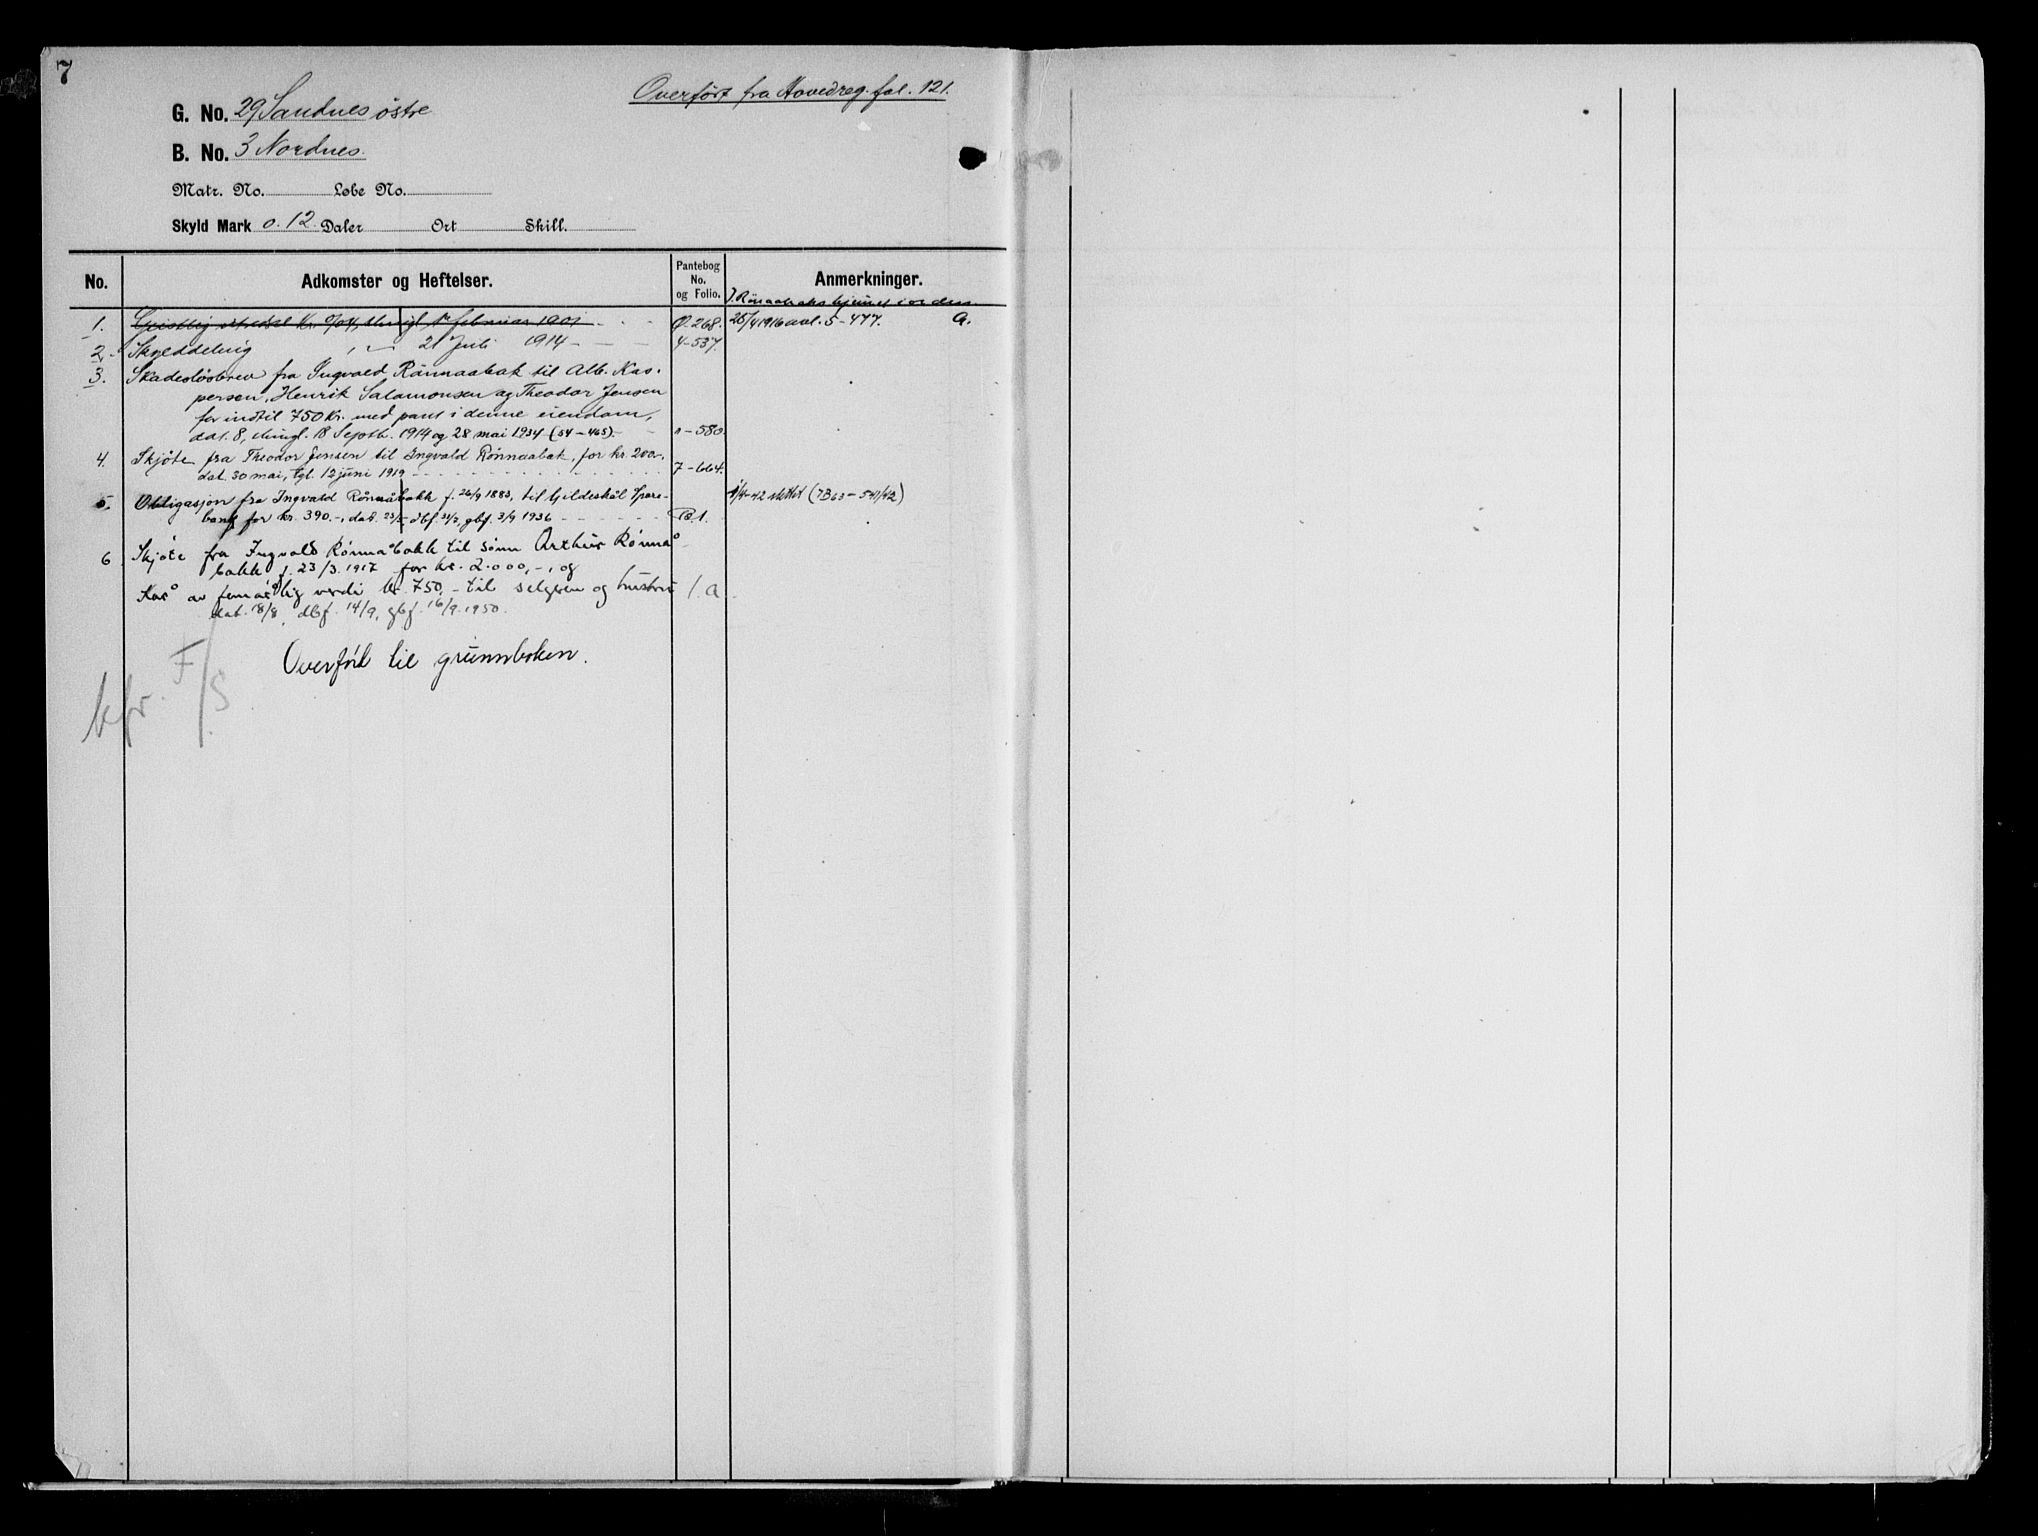 7
Overført fra Hovedreg. fol. 121.
G. No. 29 Sandnes østre
B. No. 3 Nordnes.
Matr. No. Løbe No.
Skyld Mark 0.12. Daler Ort Skill.
No. Adkomster og Heftelser. Pantebog No. og Folio. Anmerkninger.
1. februar 1901 Ø. 268. 25/4 1916 avl. 5-477. a.
2. Skylddeling " 21 Juli 1914 - - 4-537.
3. Skadesløsbrev fra Ingvald Rönnaabak til Alb. Kas-
persen, Henrik Salamonsen og Theodor Jensen
for indtil 750 Kr. med pant i denne eiendom,
dat. 8, thingl. 18 Septb. 1914 og 28 mai 1934 (54-465). " - 580.
4. Skjøte fra Theodor Jensen til Ingvald Rönnaabak, for kr. 200.-,
dat. 30 mai, tgl. 12 juni 1919 - - - 7-664.
5. Obligasjon fra Ingvald Rönnåbakk f. 26/9 1883, til Gildeskål Spare-
bank for kr. 390.-, dat. 23/5 dbf. 31/8, gbf. 3/9 1936 - - - B.1. 1/4-42 slettet (7B63-541/42)
6 Skjøte fra Ingvald Rönnåbakk til sønn Arthur Rönnå
bakk f. 23/3.1917 for kr. 2.000,-, og
Kår av femårlig verdi kr. 750,- til selgeren og hustru 1.a
dat. 18/8, dbf. 14/9, gbf. 16/9.1950.
Overført til grunnboken.
kfr. F/S